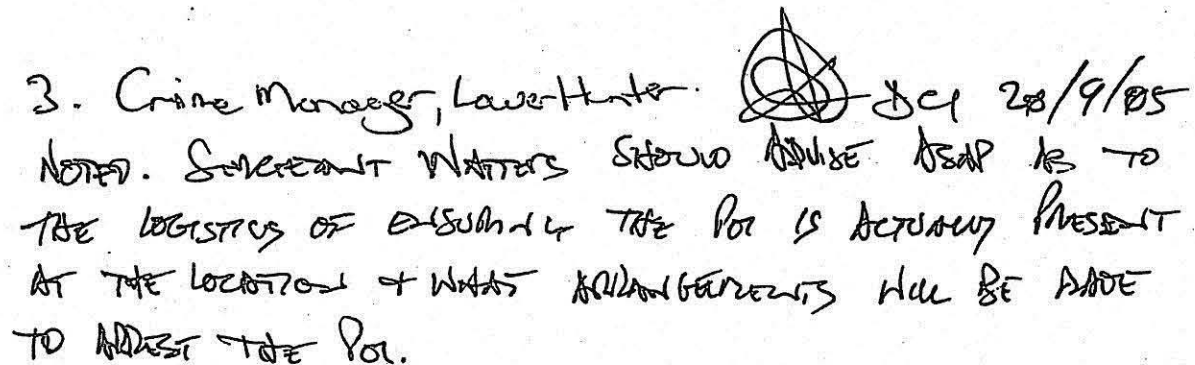 3. Crime Manager, Lower Hunter. DCI 28/9/05
NOTED. SERGEANT WATTERS SHOULD ADVISE ASAP AS TO
THE LOGISTICS OF ENSURING THE POI IS ACTUALLY PRESENT
AT THE LOCATION + WHAT ARRANGEMENTS WILL BE MADE
TO ARREST THE POI.